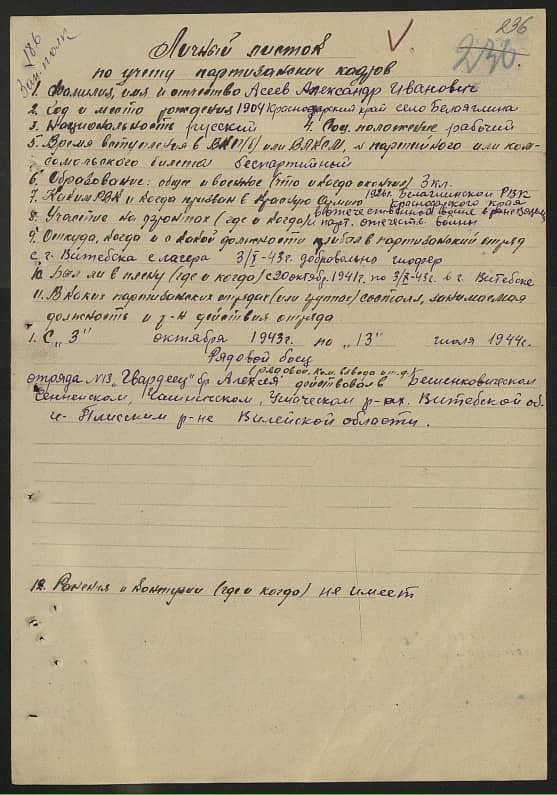 236
186
Личный листок
по учету партизанских кадров
1. Фамилия, имя и отчество Асеев Александр Иванович
2. Год и место рождения 1904 Краснодарский край село Белоглинка
3. Национальность русский 4. Соц. положение рабочий
5. Время вступления в ВКП(б) или ВЛКСМ, № партийного или ком-
сомольского билета беспартийный
6. Образование: общее и военное (что и когда окончил) 3 кл.
7. Каким РВК и когда призван в Красную Армию 1926г. Белоглинским РВК
Краснодарского края
8. Участие на фронтах (где и когда) в отечественной войне
и парт. отечеств войны
9. Откуда, когда и с какой должности прибыл в партизанский отряд
с г. Витебска с лагеря 3/X-43г. добровольно шофер
10. Был ли в плену (где и когда) с 20 октябр. 1941г. по 3/X-43г. в г. Витебске
11. В каких партизанских отрядах (или группах) состоял, занимаемая
должность и р-н действия отряда
1. С "3" октября 1943г. по "13" июля 1944г.
Рядовой боец
(рядовой, ком. взвода и т.д.)
отряда №13 "Гвардеец" бр Алексея действовал в Бешенковическом
Сенненском, Чашникском, Ушачском р-нах. Витебской об-
и Плисским р-не Вилейской области.
12. Ранения и контузии (где и когда) не имеет